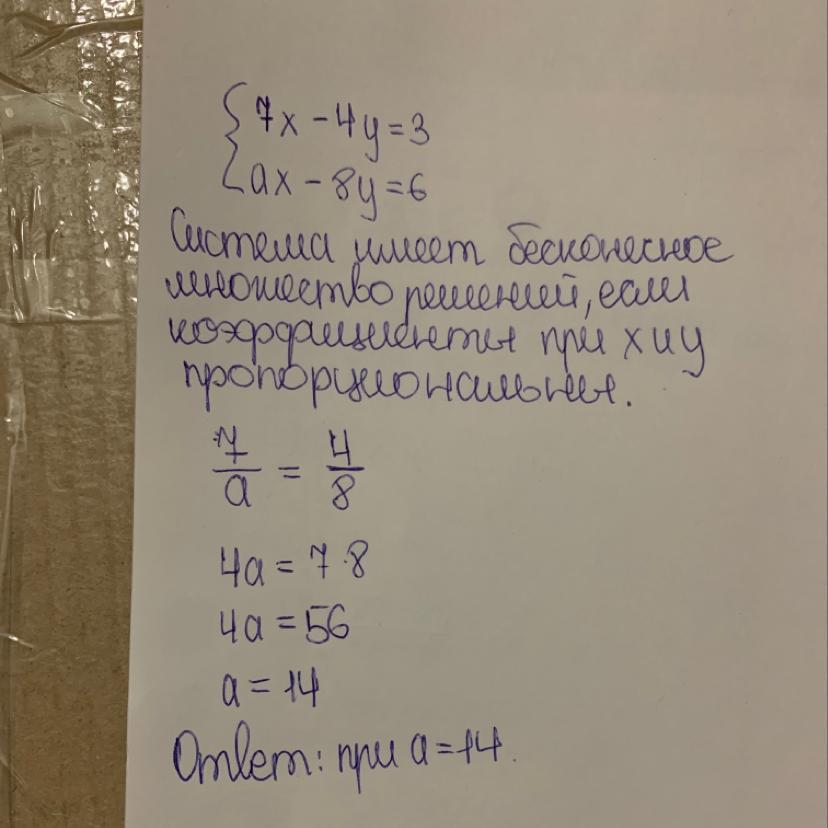 7x - 4y = 3
ax - 8y = 6
Система имеет бесконесное
множество решений, если
коэффициенты при x и y
пропорциональны.
7/a = 4/8
4a = 7·8
4a = 56
a = 14
Ответ: при a = 14.